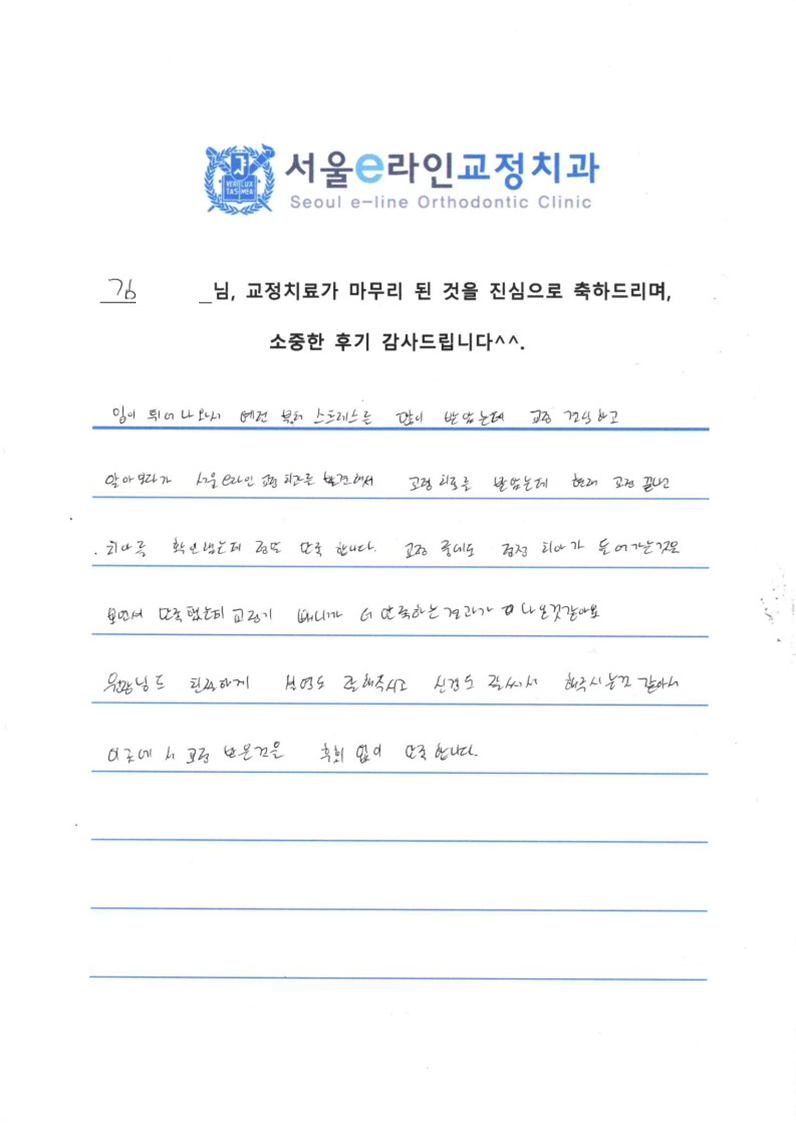 VERI LUX TAS MEA
서울e라인교정치과
Seoul e-line Orthodontic Clinic
김 _님, 교정치료가 마무리 된 것을 진심으로 축하드리며,
소중한 후기 감사드립니다^^.
입이 튀어나와서 예전 부터 스트레스를 많이 받았는데 교정 결심하고
알아보다가 서울e라인교정치과를 발견해서 교정 치료를 받았는데 현재 교정 끝나고
치아를 확인했는데 정말 만족 합니다. 교정 중에도 점점 치아가 들어가는것을
보면서 만족했는데 교정기 빼니까 더 만족하는 결과가 나온것같아요
원장님도 친절하게 설명도 잘해주시고 신경도 잘써서 해주시는것 같아서
이곳에서 교정 받은것을 후회 없이 만족 합니다.